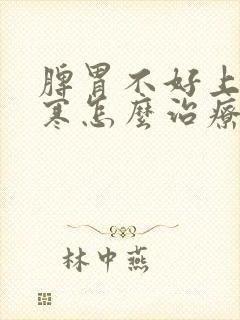 脾胃不好上
寒怎麼治療
林中燕